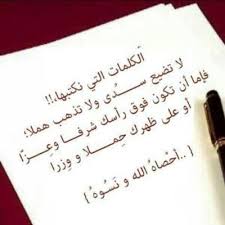 الكلمات التي نكتبها.!!
لا تضيع سُدى ولا تذهب هملا؛
فإما أن تكون فوق رأسك شرفا وعِزّا
أو على ظهرك حِملا و وِزرا
{ ..أحْصاهُ الله و نَسُوهُ }